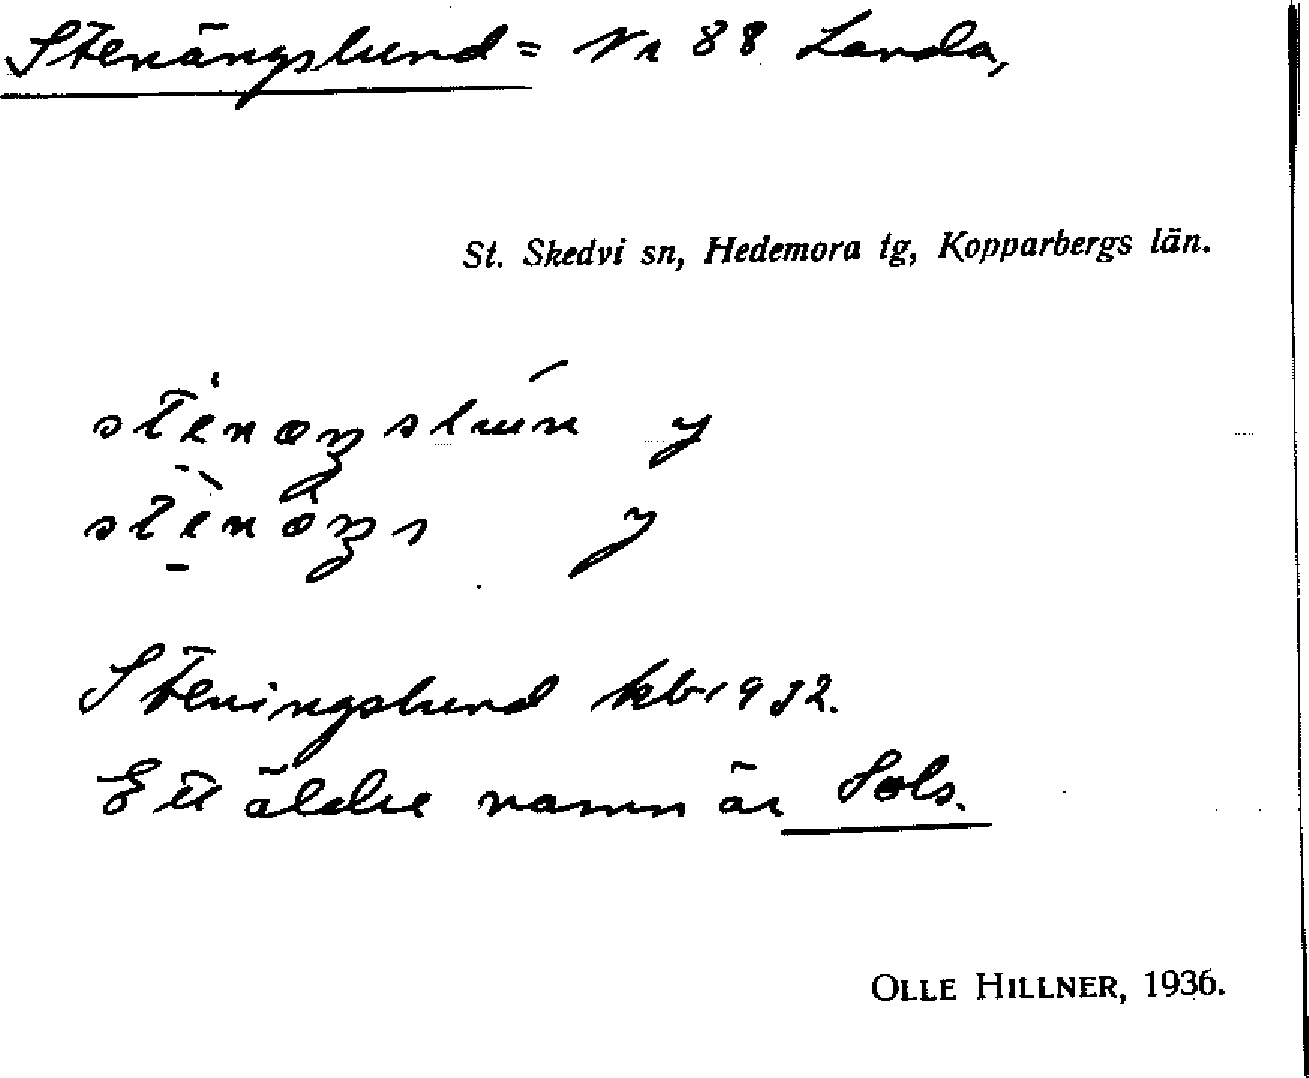 Stenängslund = Nr 88 Landa,
St. Skedvi sn, Hedemora tg, Kopparbergs län.
Steningslund kb 1932.
Ett äldre namn är Sols.
OLLE HILLNER, 1936.